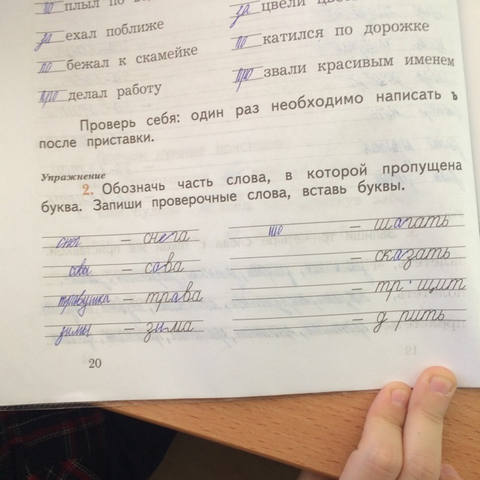 по плыл по
за ехал поближе
по бежал к скамейке
про делал работу
за цвели
по катился по дорожке
про звали красивым именем
Проверь себя: один раз необходимо написать ъ
после приставки.
Упражнение
2. Обозначь часть слова, в которой пропущена
буква. Запиши проверочные слова, вставь буквы.
снег – снега
совы – сова
травушка – трава
зимы – зима
ша – шагать
– сказать
– тр щит
– д рить
20